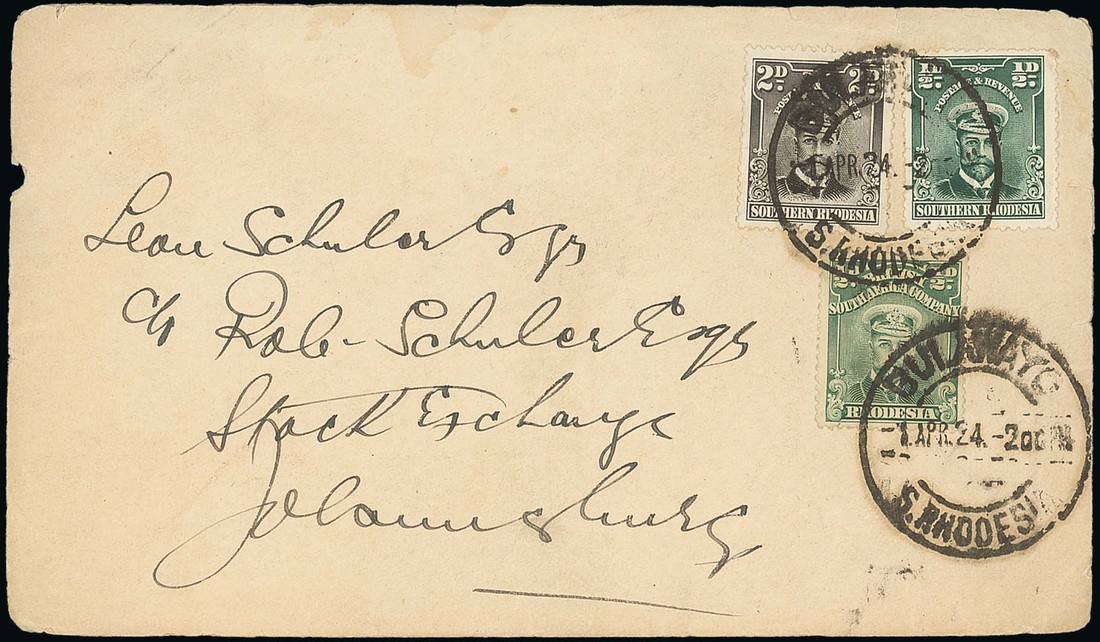 2D 2D
POSTAGE & REVENUE
SOUTHERN RHODESIA
½D ½D
POSTAGE & REVENUE
SOUTHERN RHODESIA
BULAWAYO
1 APR. 24. -2
S. RHODESIA
½D
SOUTH AFRICA COMPANY
RHODESIA
BULAWAYO
-1 APR. 24. -2 00 PM
S. RHODESIA
Leon Schuler Esqr
c/o Rob- Schuler Esqr
Stock Exchange
Johannesburg